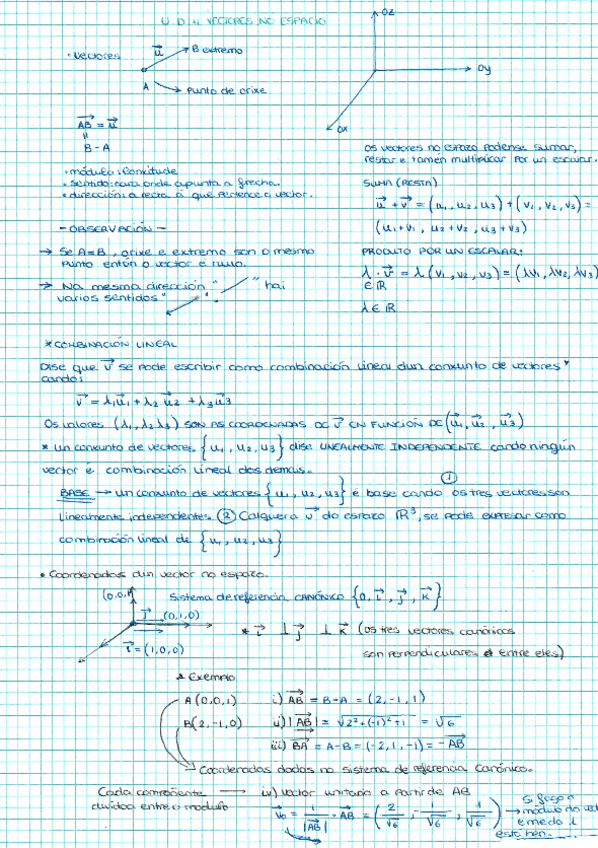 U.D.4 VECTORES NO ESPACIO
OZ
OY
OX
• Vectores
u
B extremo
A
Punto de orixe
AB = u
"
B - A
• módulo: lonxitude
• sentido: para onde apunta a frecha.
• dirección: a recta á que pertence o vector.
Os vectores no espazo pódense sumar,
restar e tamén multiplicar por un escalar.
SUMA (RESTA)
u + v = (u1, u2, u3) + (v1, v2, v3) =
(u1+v1, u2+v2, u3+v3)
PRODUTO POR UN ESCALAR:
λ · v = λ(v1, v2, v3) = (λv1, λv2, λv3)
∈ R
λ ∈ R
- OBSERVACIÓN -
→ Se A=B, orixe e extremo son o mesmo
punto entón o vector é nulo.
→ Na mesma dirección " " hai
varios sentidos "
* COMBINACIÓN LINEAL
Dise que v se pode escribir como combinación lineal dun conxunto de vectores *
cando:
v = λ1u1 + λ2u2 + λ3u3
Os valores (λ1, λ2, λ3) SON AS COORDENADAS DE v EN FUNCIÓN DE (u1, u2, u3)
* un conxunto de vectores {u1, u2, u3} dise LINEALMENTE INDEPENDENTE cando ningún
vector é combinación lineal dos demáis.
BASE → un conxunto de vectores {u1, u2, u3} é base cando ① os tres vectores son
linealmente independentes ② Calquera v do espazo R³, se pode expresar como
combinación lineal de {u1, u2, u3}
• Coordenadas dun vector no espazo.
(0,0,1)
j (0,1,0)
i = (1,0,0)
Sistema de referencia CANÓNICO {0, i, j, k}
* i ⊥ j ⊥ k (os tres vectores canónicos
son perpendiculares entre eles)
Exemplo
A(0,0,1) i) AB = B-A = (2,-1,1)
B(2,-1,0) ii) |AB| = √2²+(-1)²+1 = √6
iii) BA = A-B = (-2,1,-1) = -AB
Coordenadas dadas no sistema de referencia canónico.
Cada compoñente → iv) vector unitario a partir de AB
dividoa entre o módulo
v0 = 1/|AB| · AB = (2/√6, -1/√6, 1/√6) →
Si fago o
módulo do
e me da 1
está ben.